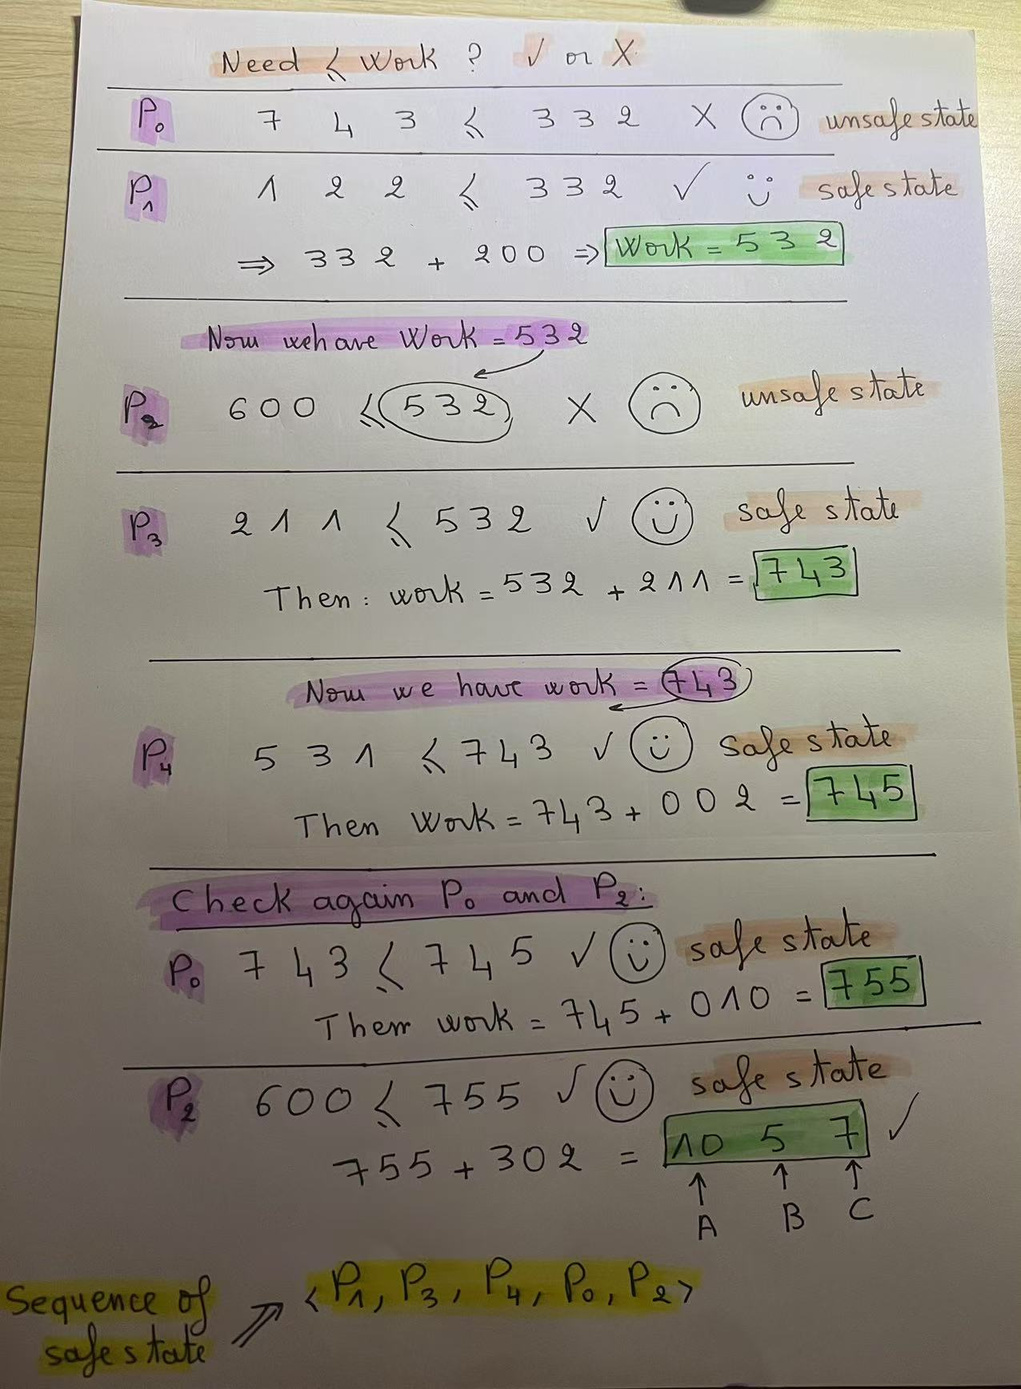 Need ≤ Work ? ✓ or X
P0 7 4 3 ≤ 3 3 2 X unsafe state
P1 1 2 2 ≤ 3 3 2 ✓ safe state
⇒ 3 3 2 + 2 0 0 ⇒ Work = 5 3 2
Now we have Work = 5 3 2
P2 6 0 0 ≤ 5 3 2 X unsafe state
P3 2 1 1 ≤ 5 3 2 ✓ safe state
Then : work = 5 3 2 + 2 1 1 = 7 4 3
Now we have work = 7 4 3
P4 5 3 1 ≤ 7 4 3 ✓ safe state
Then Work = 7 4 3 + 0 0 2 = 7 4 5
Check again P0 and P2 :
P0 7 4 3 ≤ 7 4 5 ✓ safe state
Then work = 7 4 5 + 0 1 0 = 7 5 5
P2 6 0 0 ≤ 7 5 5 ✓ safe state
7 5 5 + 3 0 2 = 10 5 7 ✓
↑ ↑ ↑
A B C
Sequence of ⇒ < P1, P3, P4, P0, P2 >
safe state